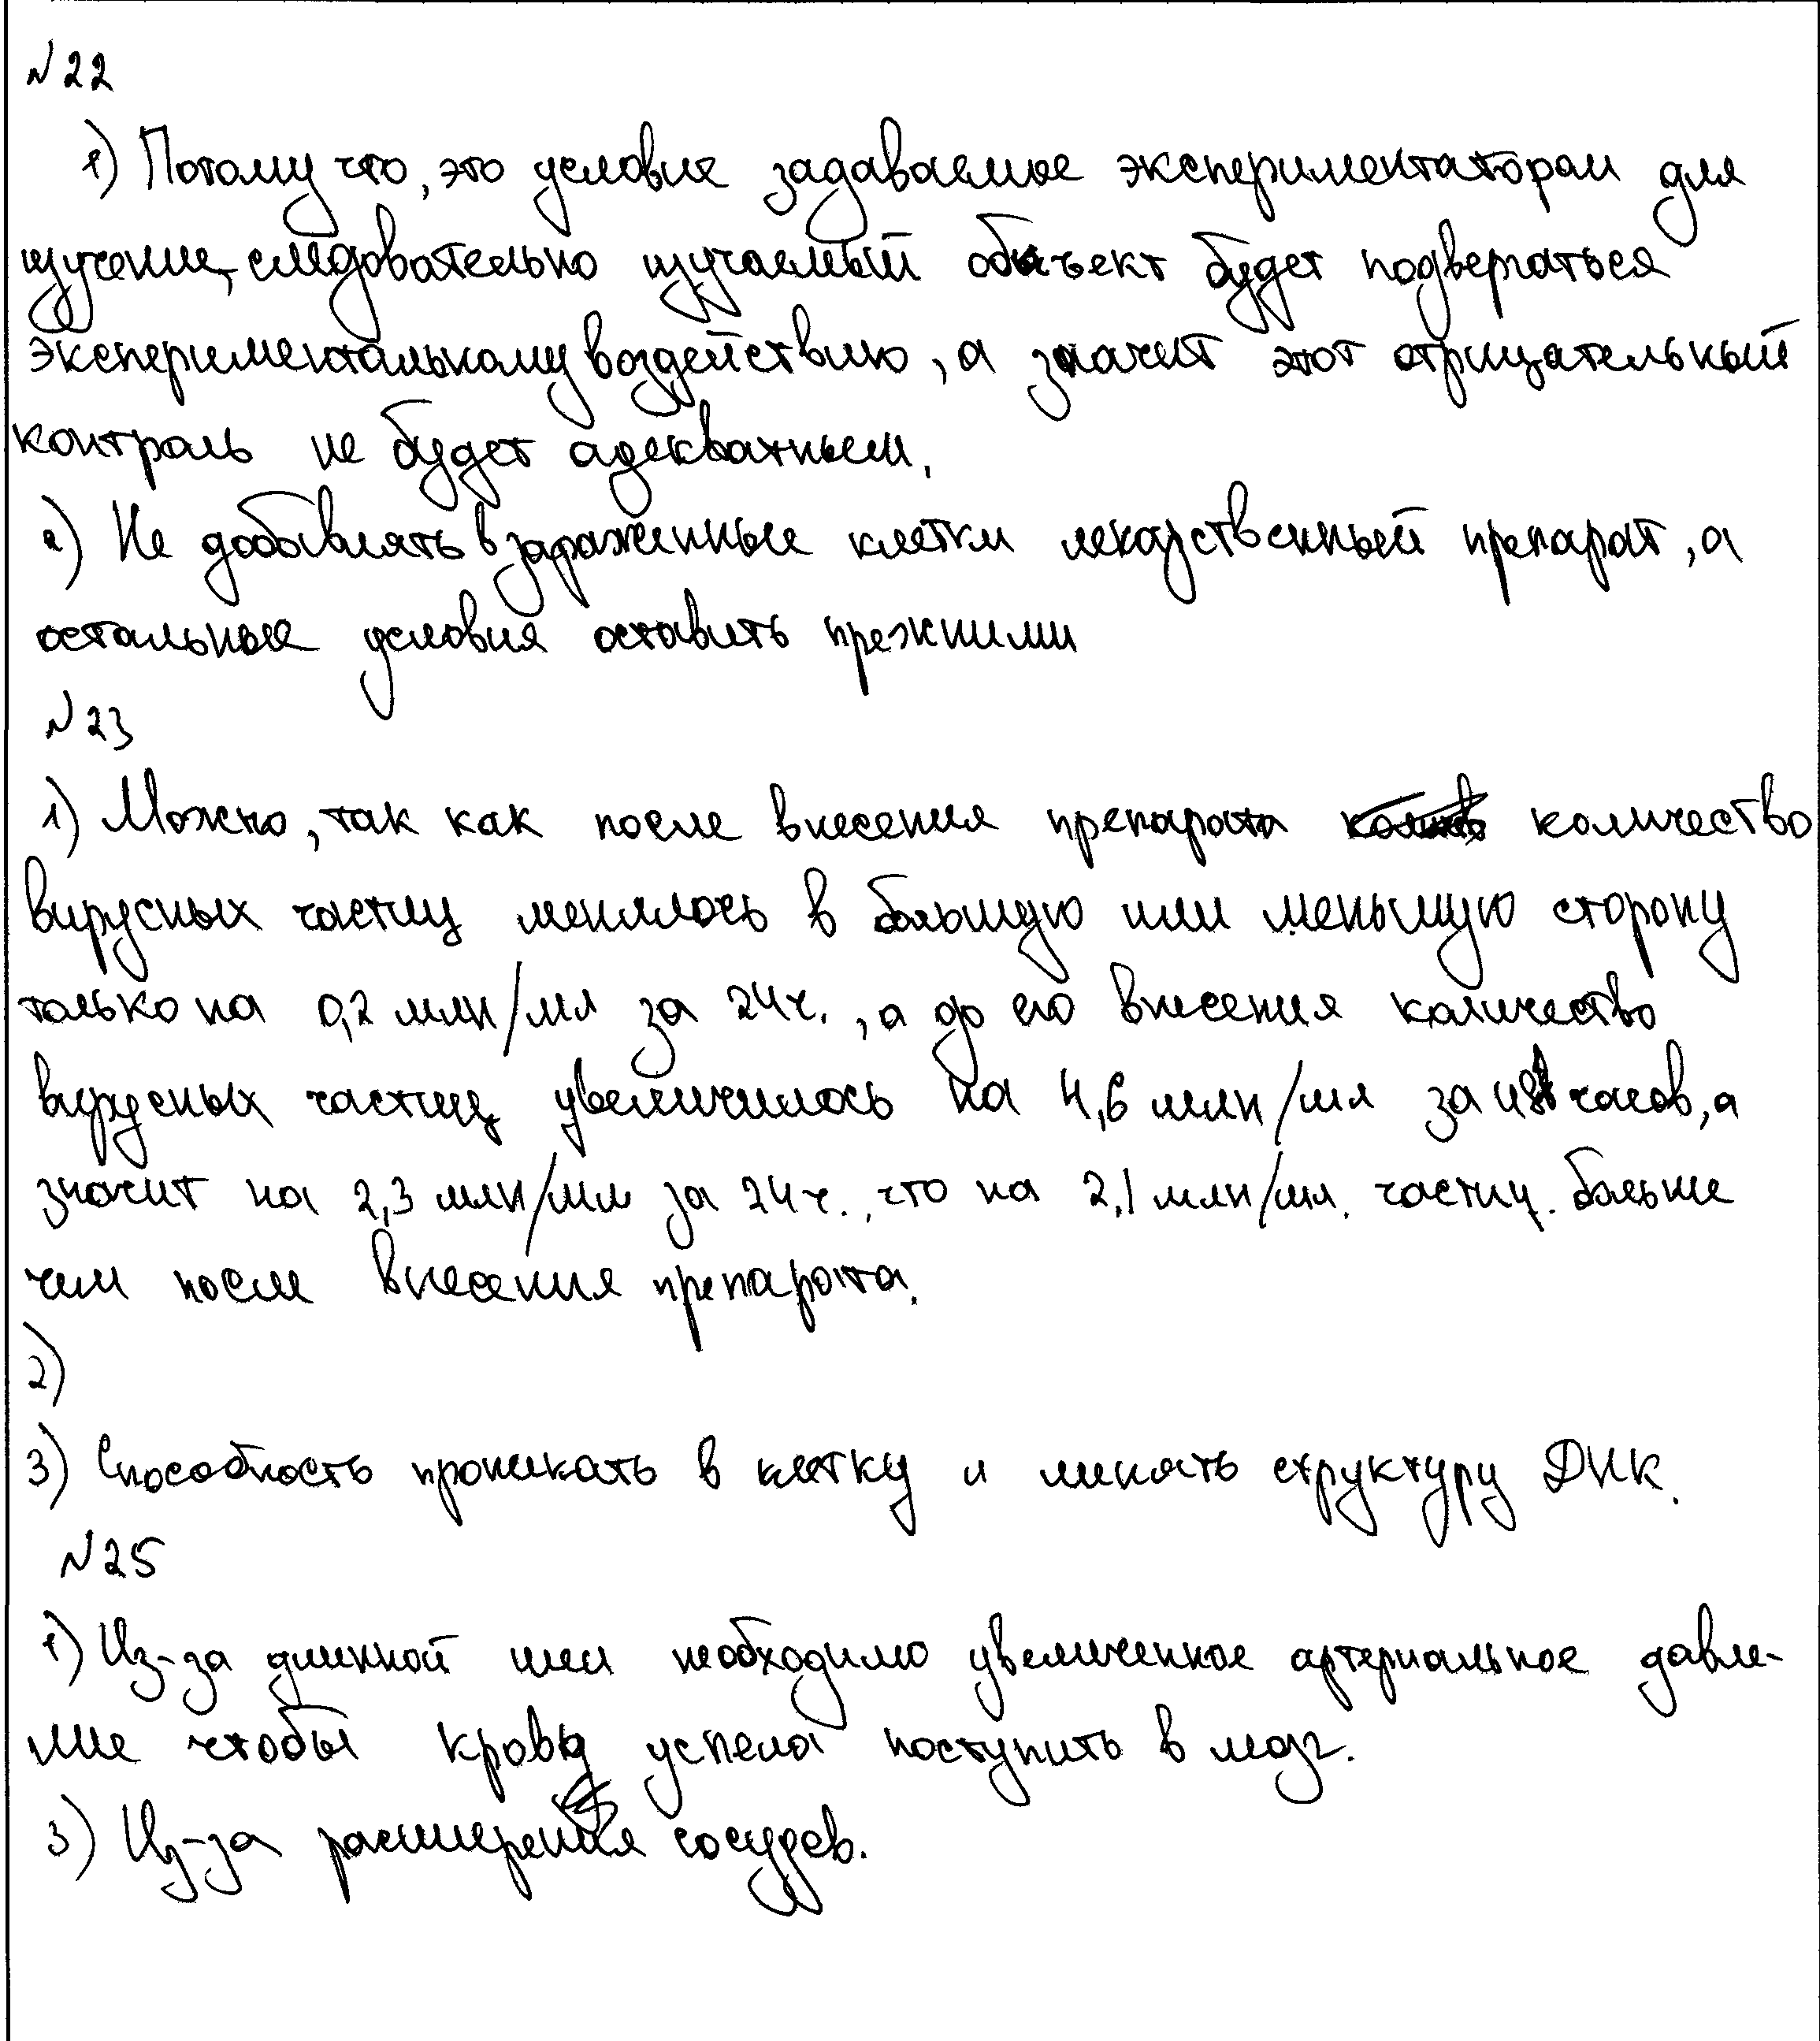 №22
1) Потому что, это условие задаваемое экспериментатором для
изучение, следовательно изучаемый объект будет подвергаться
экспериментальному воздействию, а значит этот отрицательный
контроль не будет адекватным.
2) Не добавлять в зараженные клетки лекарственный препарат, а
остальные условия оставить прежними
№23
1) Можно, так как после внесения препарата количество
вирусных частиц менялось в большую или меньшую сторону
только на 0,2 млн/мл за 24ч., а до его внесения количество
вирусных частиц увеличилось на 4,6 млн/мл за 48 часов, а
значит на 2,3 млн/мл за 24ч., что на 2,1 млн/мл. частиц. больше
чем после внесения препарата.
2)
3) Способность проникать в клетку и менять структуру ДНК.
№25
1) Из-за длинной шеи необходимо увеличенное артериальное давле-
ние чтобы кровь успела поступить в мозг.
3) Из-за расширения сосудов.